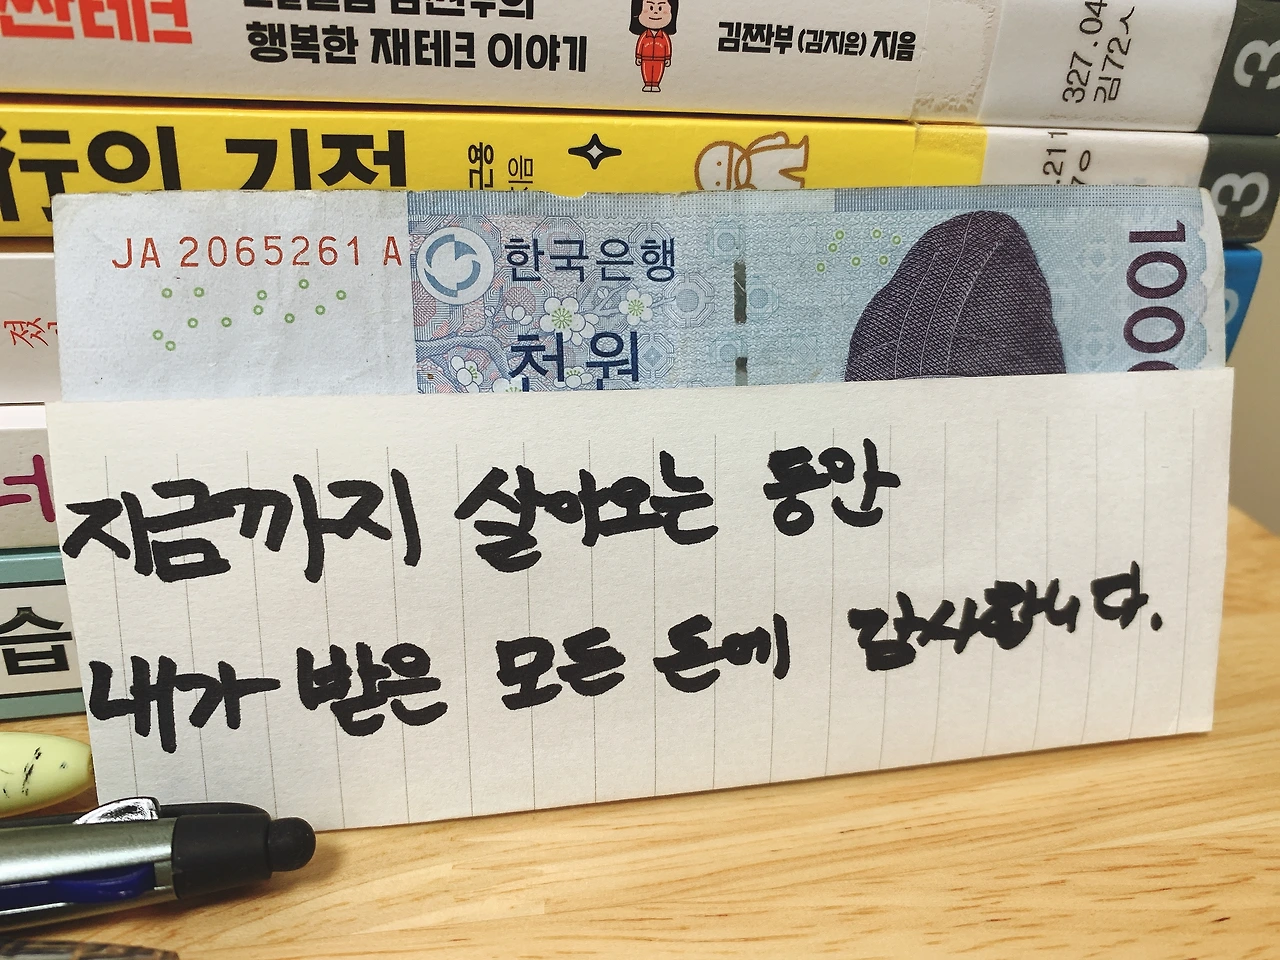 짠테크
행복한 재테크 이야기
김짠부 (김지은) 지음
327.04
김72ㅅ
3
行의 기적
3
JA 2065261 A
한국은행
천원
1000
습
지금까지 살아오는 동안
내가 받은 모든 돈에 감사합니다.